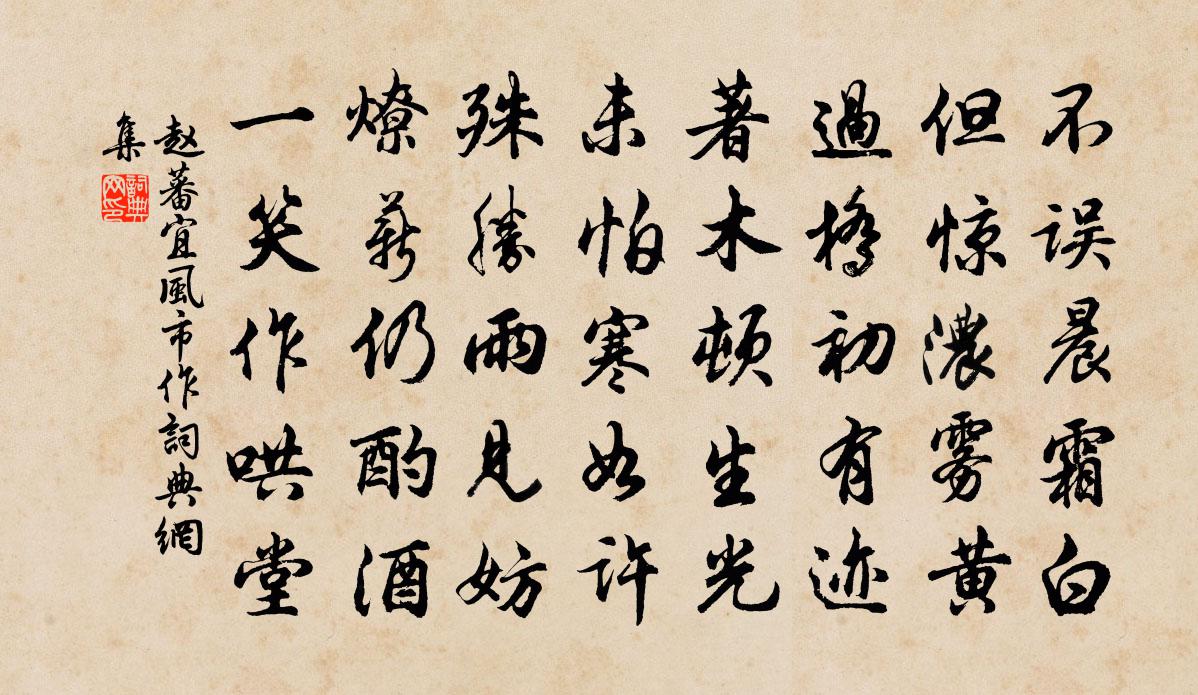 不误晨霜白
但惊濃雾黄
過橋初有迹
著木顿生光
未怕寒如许
殊勝雨見妨
燎薪仍酌酒
一笑作哄堂
赵蕃宜風市作詞典網
集
詞典
网印